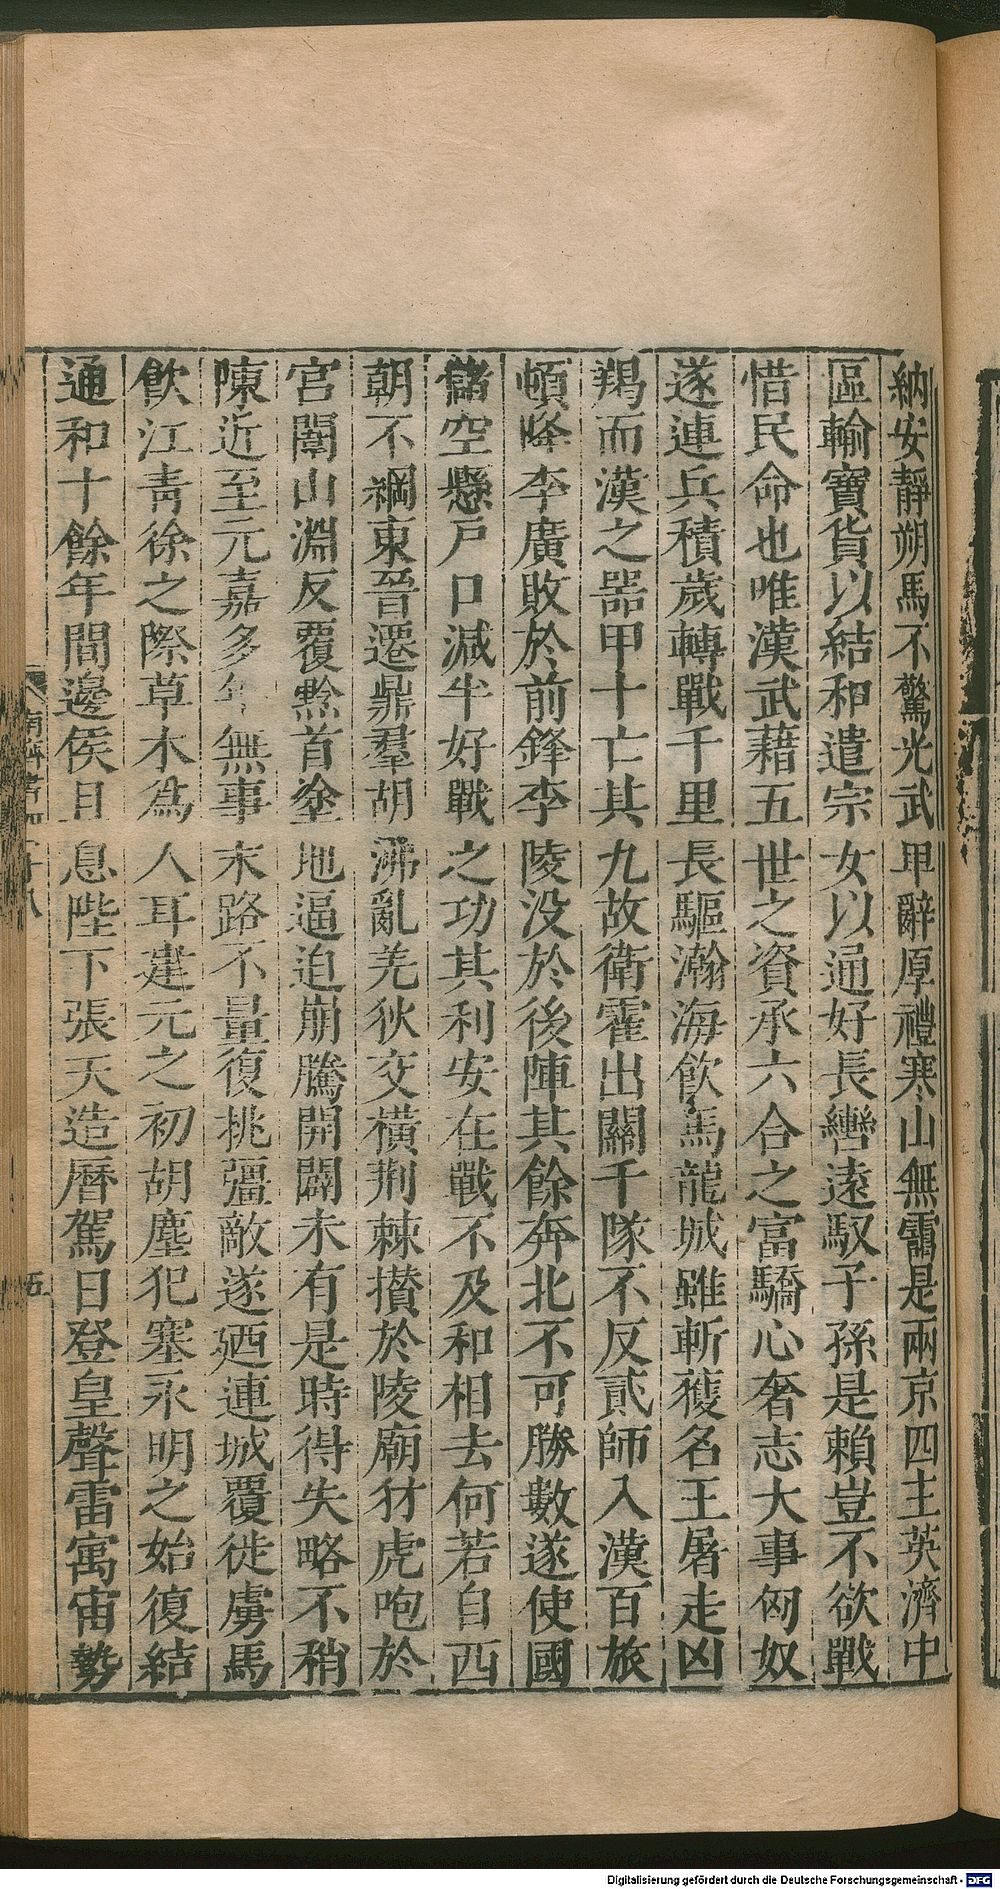 納安靜朔馬不驚光武甲辭厚禮寒山無靄是兩京四主英濟中
區輸寶貨以結和遣宗女以通好長轡遠馭子孫是賴豈不欲戰
惜民命也唯漢武藉五世之資承六合之富驕心奢志大事匈奴
遂連兵積歲轉戰千里長驅瀚海飲馬龍城雖斬獲名王屠走凶
羯而漢之器甲十亡其九故衛霍出關千隊不反貳師入漢百旅
頓降李廣敗於前鋒李陵没於後陣其餘奔北不可勝數遂使國
儲空懸戸口減半好戰之功其利安在戰不及和相去何若自西
朝不綱東晉遷鼎羣胡沸亂羌狄交橫荆棘攅於陵廟犲虎咆於
宮闈山淵反覆黔首塗地逼迫崩騰開闢未有是時得失略不稍
陳近至元嘉多年無事末路不量復挑彊敵遂廼連城覆徙虜馬
飲江青徐之際草木爲人耳建元之初胡塵犯塞永明之始復結
通和十餘年間邊候且息陛下張天造曆駕日登皇聲雷寓宙勢
南齊書四十八
五
Digitalisierung gefördert durch die Deutsche Forschungsgemeinschaft - DFG